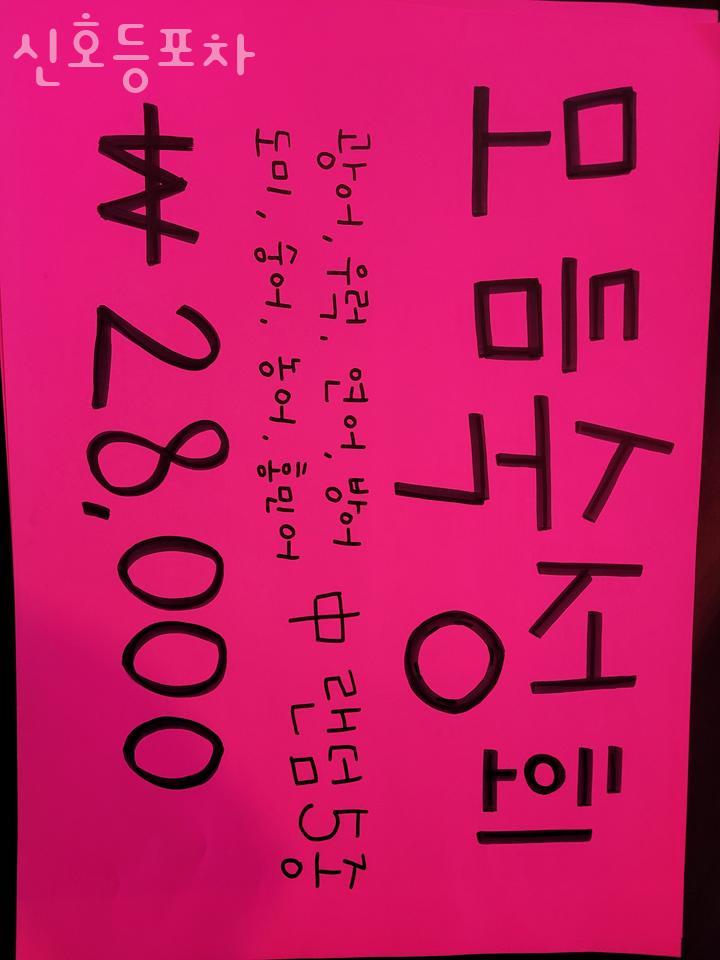 신호등포차
모듬숙성회
광어, 우럭, 연어, 방어
도미, 숭어, 농어, 홍민어
中 랜덤 5종
₩ 28,000